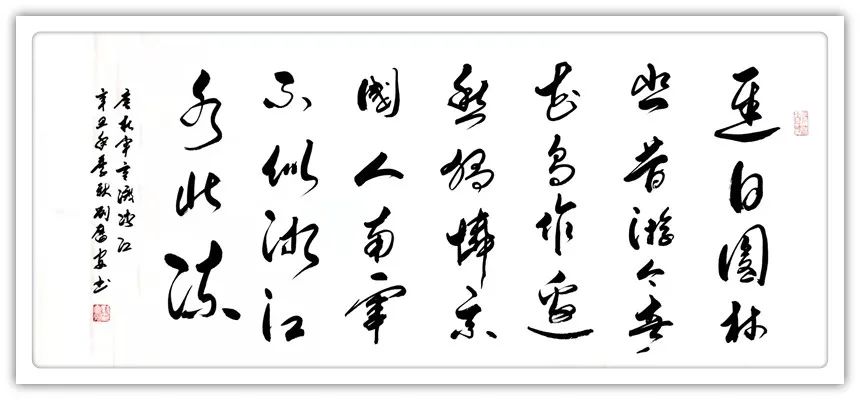 遲日園林
悲昔游今春
花鳥作邊
愁獨憐京
國人南竄
不似湘江
水北流
唐杜審言渡湘江
辛丑年孟秋劉安書